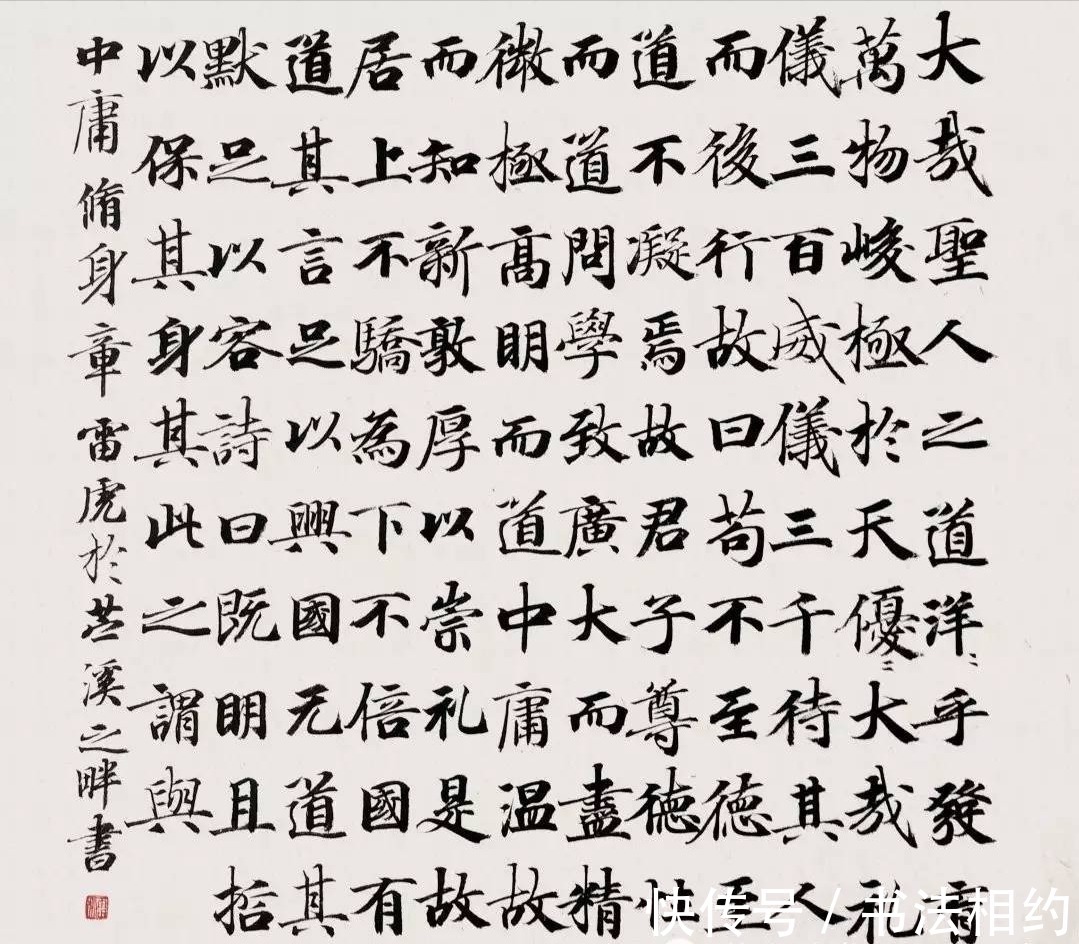 大哉聖人之道洋〻乎發育
萬物峻極於天優〻大哉礼
儀三百威儀三千待其人
而後行故曰苟不至德至
道不凝焉故君子尊德性
而道問學致廣大而盡精
微極高明而道中庸温故
而知新敦厚以崇礼是故
居上不驕為下不倍國有
道其言足以興國无道其
默足以容詩曰既明且哲
以保其身其此之謂與
中庸脩身章雷虎於苕溪之畔書
快传号 / 书法相约